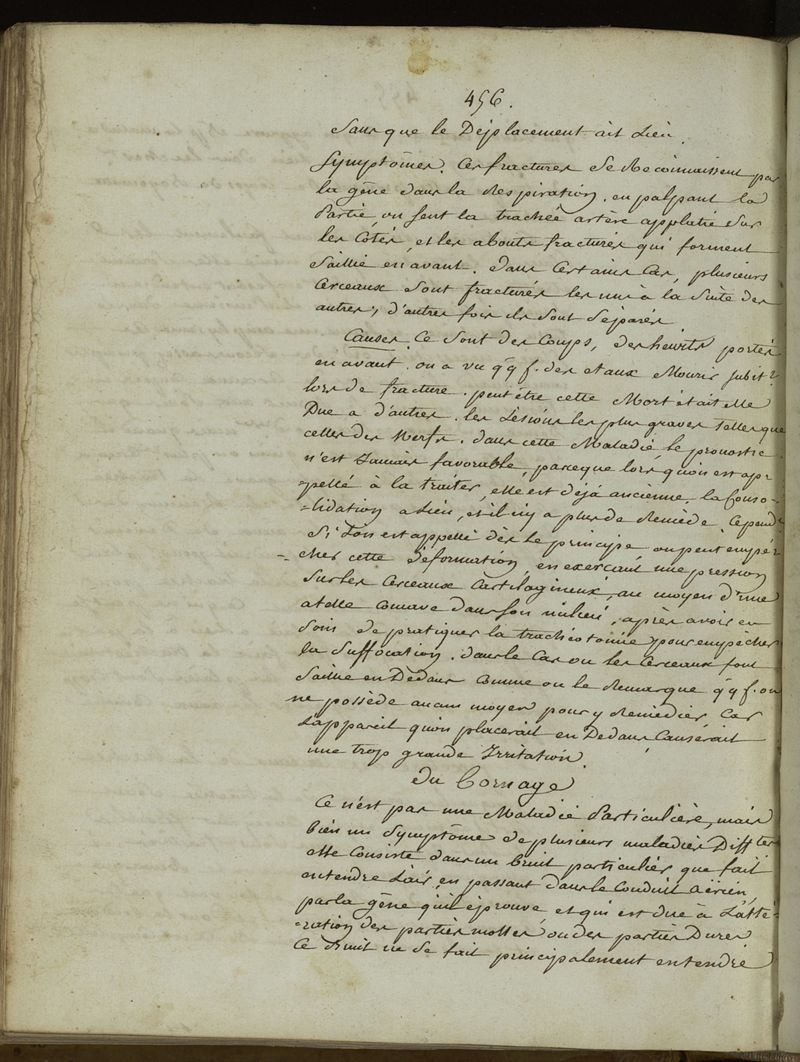 456.
Sans que le Déplacement ait Lieu.
Symptômes. Ces fractures se Reconnaissent par
la gêne dans la Respiration. en palpant la
Partie, on sent la trachée artère applatie sur
les Côtés, et les abouts fracturés qui forment
Saillie en avant. Dans Certains Cas, plusieurs
Cerceaux sont fracturés les uns à la Suite des
autres, d'autres fois ils sont Séparés.
Causes. Ce sont des Coups, des heurts portés
en avant. on a vu qq f. des etaux Mourir subitt
lors de fracture. peut être cette Mort était elle
Due a d'autres Lésions les plus graves telles que
celles des Nerfs. dans cette Maladie le pronostic
n'est Jamais favorable, parceque lors qu'on est ap-
-pellé à la traiter, elle est déjà ancienne. la Conso-
-lidation a Lieu, et il n'y a plus de Remède. Cepend.t
Si l'on est appellé dès le principe on peut empê-
-cher cette Déformation, en exerçant une pression
Sur les Cerceaux Cartilagineux, au moyen d'une
atelle Concave dans son milieu, après avoir eu
Soin de pratiquer la trachéotomie pour empêcher
la Suffocation. dans le Cas ou les Cerceaux font
Saillie en Dedans Comme on le Remarque qq f. on
ne possède aucun moyen pour y Remédier Car
L'appareil qu'on placerait en Dedans Causerait
une trop grande Irritation.
Du Cornage
Ce n'est pas une Maladie Particulière, mais
bien un Symptôme de plusieurs maladies Difftes
elle Consiste dans un bruit particulier que fait
entendre L'air, en passant dans le Conduit Aërien,
par la gêne qu'il éprouve et qui est due à L'alté-
-ration des parties molles, ou des parties Dures
Ce Bruit ne se fait principalement entendre